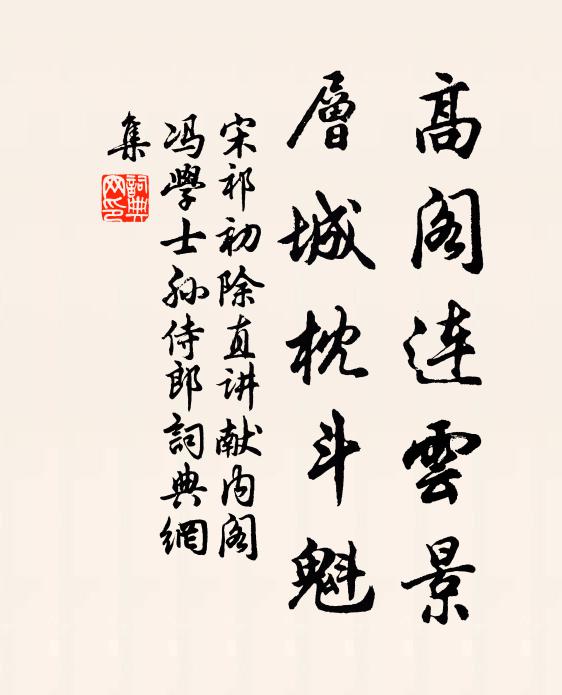 高阁连雲景
層城枕斗魁
宋祁初除直讲献内阁
冯學士孙侍郎詞典網
集
詞典网印